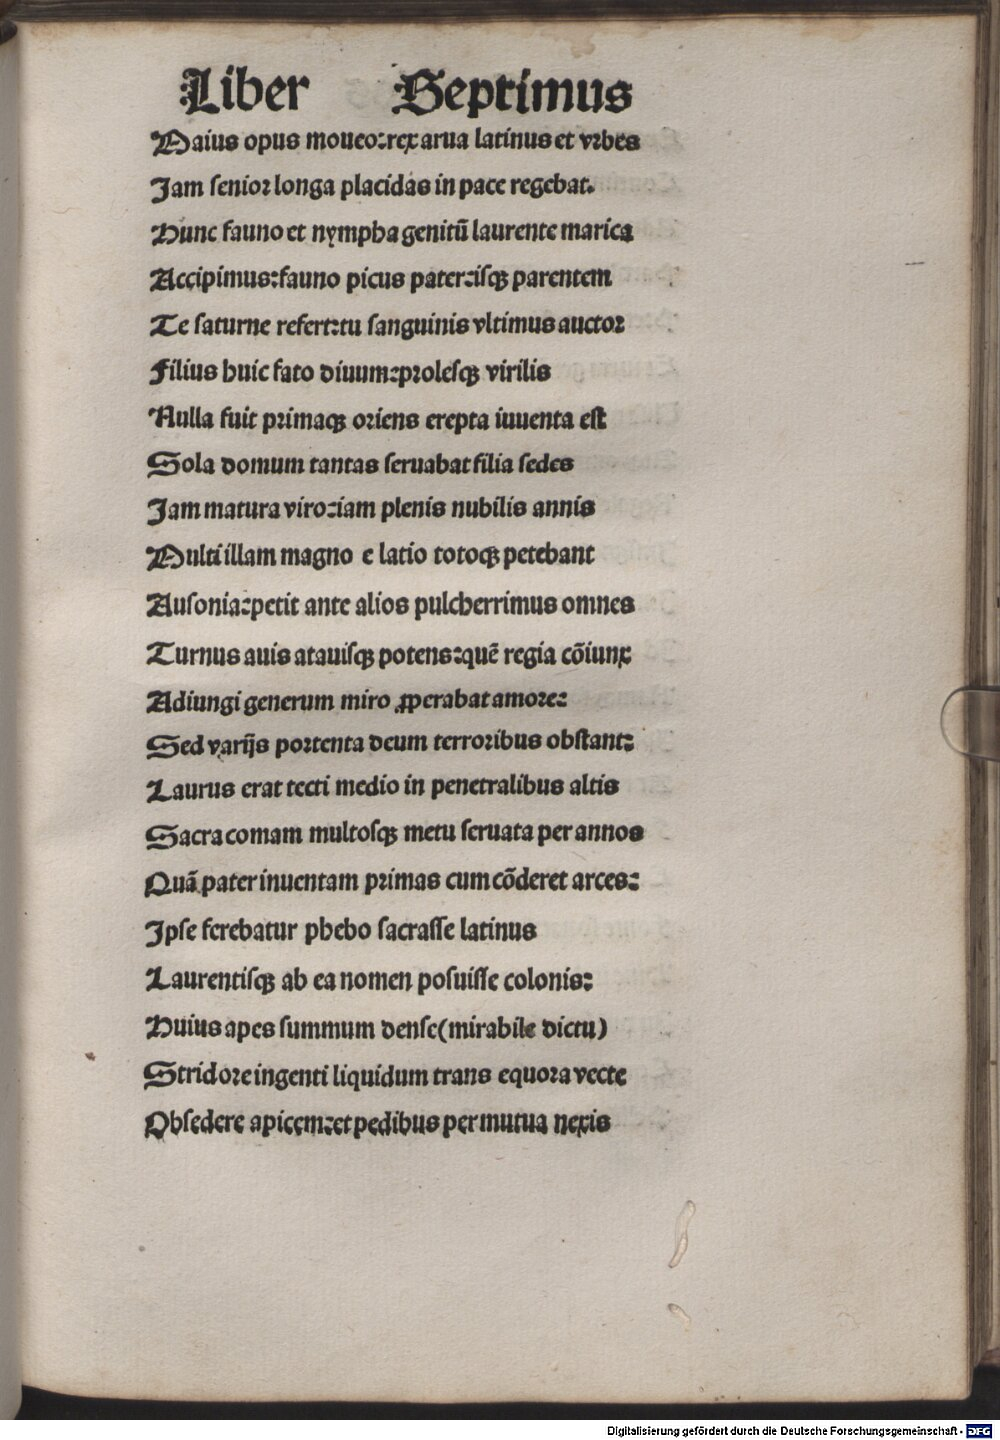 Liber Septimus
Maius opus moueo:rex arua latinus et vrbes
Jam senior longa placidas in pace regebat.
Hunc fauno et nympha genitū laurente marica
Accipimus:fauno picus pater:isqꝫ parentem
Te saturne refert:tu sanguinis vltimus auctor
Filius huic fato diuum:prolesqꝫ virilis
Nulla fuit primaqꝫ oriens erepta iuuenta est
Sola domum tantas seruabat filia sedes
Jam matura viro:iam plenis nubilis annis
Multi illam magno e latio totoqꝫ petebant
Ausonia:petit ante alios pulcherrimus omnes
Turnus auis atauisqꝫ potens:quē regia cōiunx
Adiungi generum miro ꝓperabat amore:
Sed varijs portenta deum terroribus obstant:
Laurus erat tecti medio in penetralibus altis
Sacra comam multosqꝫ metu seruata per annos
Quā pater inuentam primas cum cōderet arces:
Ipse ferebatur phebo sacrasse latinus
Laurentisqꝫ ab ea nomen posuisse colonis:
Huius apes summum dense(mirabile dictu)
Stridore ingenti liquidum trans equora vecte
Obsedere apicem:et pedibus per mutua nexis
Digitalisierung gefördert durch die Deutsche Forschungsgemeinschaft - DFG